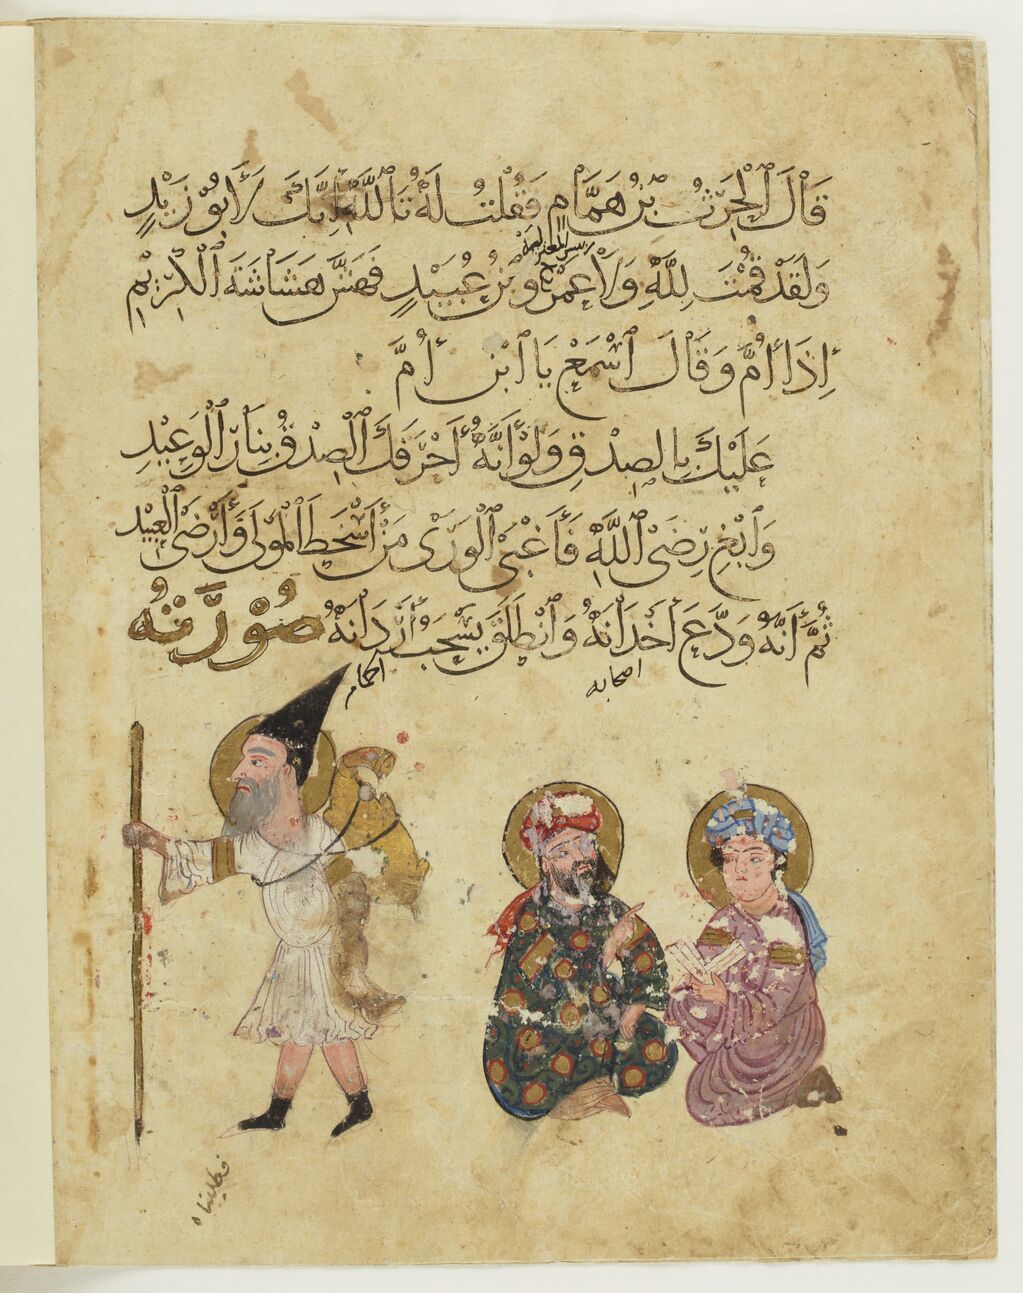 قَالَ ٱلْحٰرِثُ بْنُ هَمَّامٍ فَقُلْتُ لَهُ تَاللّٰهِ إِنَّكَ لَأَبُوْ زَيْدٍ
وَلَقَدْ قُمْتَ لِلّٰهِ وَلَا عَمْرُو بْنُ عُبَيْدٍ فَهَشَّ هَشَاشَةَ ٱلْكَرِيْمِ
إِذَا أُمَّ وَقَالَ ٱسْمَعْ يَا ٱبْنَ أُمَّ
عَلَيْكَ بِالصِدْقِ وَلَوْ أَنَّهُ أَحْرَقَكَ ٱلصِدْقُ بِنَارِ ٱلْوَعِيْدِ
وَٱبْغِ رِضَى ٱللّٰهِ فَأَغْبَى ٱلْوَرَى مَنْ أَسْخَطَ ٱلْمَوْلَى وَأَرْضَى ٱلْعَبِيْد
ثُمَّ أَنَّهُ وَدَّعَ أَخْدَانَهُ وَٱنْطَلَقَ يَسْحَبُ أَرْدَانَهُ صُوْرَتُهُ
اصحابه اكمام